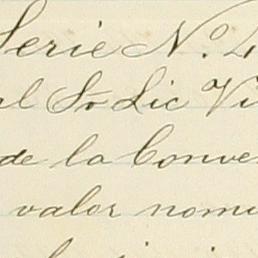 Serie No.
al Sr Lic Vi
de la Conve
valor nomi